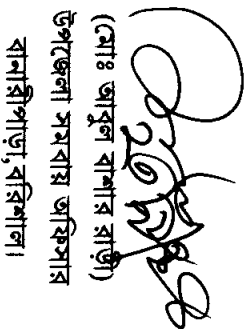 (মোঃ আবুল বাশার রাড়ী)
উপজেলা সমবায় অফিসার
বানারীপাড়া, বরিশাল।